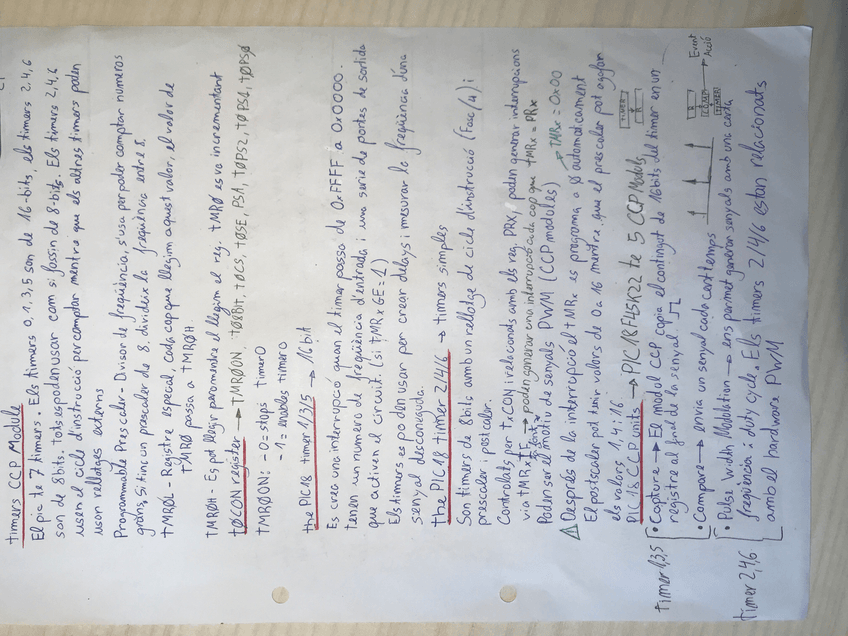 timers CCP Module
El pic te 7 timers. Els timers 0,1,3,5 son de 16-bits, els timers 2,4,6
son de 8bits. tots es poden usar com si fossin de 8-bits. Els timers 2,4,6
usen el ciclo d'instrucció per comptar mentre que els altres timers poden
usar rellotges externs
Programmable Prescaler - Divisor de freqüència, s'usa per poder comptar numeros
grans, si tinc un prescaler de 8. divideix la freqüència entre 8.
tMRØL Registre especial, cada cop que llegim aquest valor, el valor de
tMRØ passa a tMRØH
tMRØH - Es pot llegir, pero mentre el llegim el reg. tMRØ es va incrementant
tØCON register → TMRØON, tØ8BIT, tØCS, tØSE, PSA, tØPS2, tØPS1, tØPSØ
tMRØON: - 0 = stops timer0
- 1 = enables timer0
the PIC18 timer 1/3/5 → 16bit
Es crea una interrupció quan el timer passa de 0xFFFF a 0x0000.
tenen un numero de freqüència d'entrada i una serie de portes de sortida
que activen el circuit. (si tMRxGE=1)
Els timers es poden usar per crear delays i mesurar la freqüència d'una
senyal desconeguda.
the PIC18 timmer 2/4/6 → timers simples
Son timers de 8bits amb un rellotge de ciclo d'instrucció (Fosc/4) i
prescaler i postcaler.
Controlats per TxCON i relacionats amb els reg. PRX, poden generar interrupcions
via tMRxIF → poden generar una interrupció cada cop que tMRx = PRx
Poden ser el motiu de senyals PWM (CCP modules) → TMRx = 0x00
⚠ Després de la interrupció el tMRx es programa a Ø automaticament
El postscaler pot tenir valors de 0 a 16 mentre que el prescaler pot agafar
els valors 1, 4 i 16
PIC18 CCP units → PIC18F45K22 te 5 CCP Moduls,
timer 1,3,5
• Capture → El modul CCP copia el contingut de 16bits del timer en un
registre al final de la senyal
TIMER
R
• Compare → envia un senyal cada cert temps
R
COMP
TIMER
Event
Acció
timer 2,4,6
• Pulse Width Modulation → ens permet generar senyals amb una certa
freqüència i duty cycle. Els timers 2/4/6 estan relacionats
amb el hardware PWM